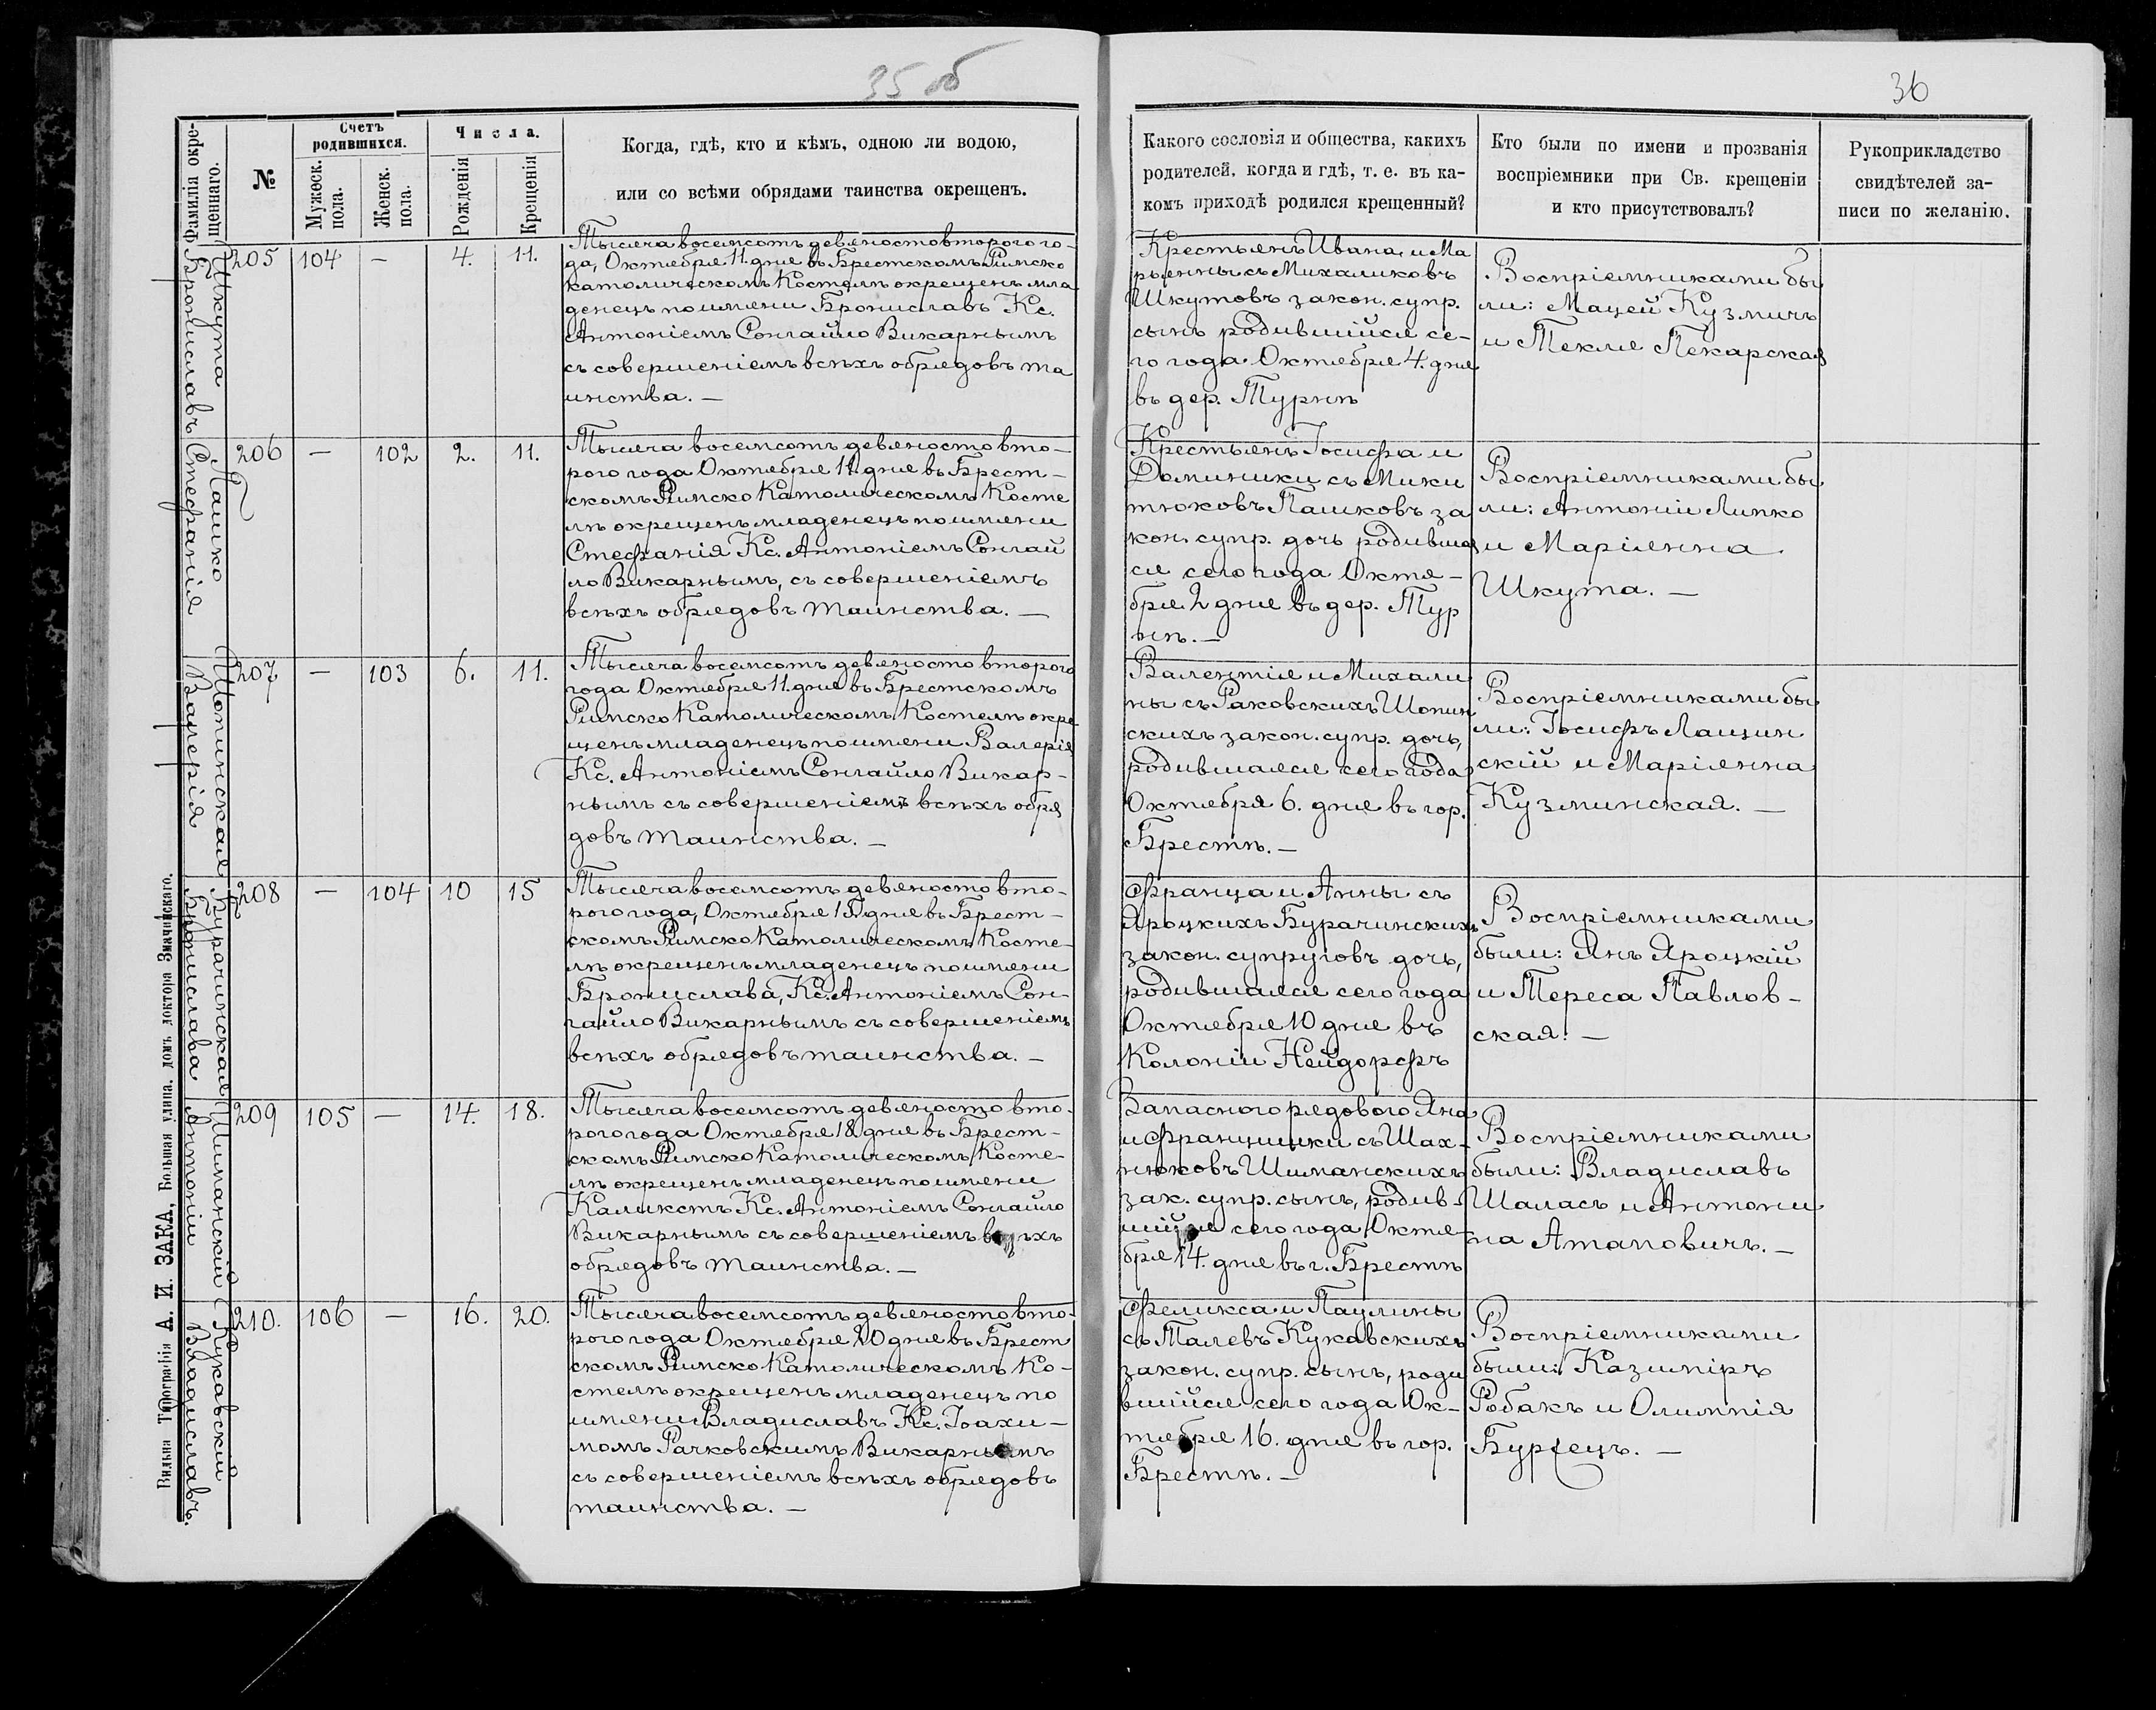 35 об
36
Фамилія окре-
щеннаго.
№
Счетъ
родившихся.
Мужеск.
пола.
Женск.
пола.
Числа.
Рожденія
Крещенія
Когда, гдѣ, кто и кѣмъ, одною ли водою,
или со всѣми обрядами таинства окрещенъ.
Какого сословія и общества, какихъ
родителей, когда и гдѣ, т. е. въ ка-
комъ приходѣ родился крещенный?
Кто были по имени и прозванія
воспріемники при Св. крещеніи
и кто присутствовалъ?
Рукоприкладство
свидѣтелей за-
писи по желанію.
Шкута
Брониславъ
205 104 — 4. 11.
Тысяча восемсотъ девяносто второго го-
да, Октября 11. дня въ Брестскомъ Римско
Католическомъ Костелѣ окрещенъ мла
денецъ по имени Брониславъ Кс.
Антоніемъ Сонгайло Викарнымъ
съ совершеніемъ всѣхъ обрядовъ та
инства. —
Крестьянъ Ивана и Ма
рьянны съ Михаликовъ
Шкутовъ закон. супр.
сынъ родившійся се-
го года Октября 4. дня
въ дер. Турнѣ
Воспріемниками бы
ли: Мацей Кузмичъ
и Текля Пекарская
Пашко
Стефанія
206 — 102 2. 11.
Тысяча восемсотъ девяносто вто-
рого года Октября 11 дня въ Брест-
скомъ Римско Католическомъ Косте
лѣ окрещенъ младенецъ по имени
Стефанія Кс. Антоніемъ Сонгай
ло Викарнымъ, съ совершеніемъ
всѣхъ обрядовъ таинства. —
Крестьянъ Іосифа и
Доминики съ Мики
тюковъ Пашковъ за
кон. супр. дочь родивша
ся сего года Октя-
бря 2 дня въ дер. Тур
нѣ. —
Воспріемниками бы
ли: Антоній Липко
и Маріянна
Шкута. —
Шопинская
Валерія
207 — 103 6. 11.
Тысяча восемсотъ девяносто второго
года Октября 11. дня въ Брестскомъ
Римско Католическомъ Костелѣ окре
щенъ младенецъ по имени Валерія
Кс. Антоніемъ Сонгайло Викар-
нымъ съ совершеніемъ всѣхъ обря
довъ таинства. —
Валентія и Михали
ны съ Раковскихъ Шопин
скихъ закон. супр. дочь,
родившаяся сего года
Октября 6. дня въ гор.
Брестѣ. —
Воспріемниками бы
ли: Іосифъ Лащин
скій и Маріянна
Кузминская. —
Бурачинская
Бронислава
208 — 104 10 15
Тысяча восемсотъ девяносто вто-
рого года, Октября 15 дня въ Брест-
скомъ Римско Католическомъ Косте-
лѣ окрещенъ младенецъ по имени
Бронислава, Кс. Антоніемъ Сон-
гайло Викарнымъ съ совершеніемъ
всѣхъ обрядовъ таинства. —
Франца и Анны съ
Яроцкихъ Бурачинскихъ
закон. супруговъ дочь,
родившаяся сего года
Октября 10 дня въ
Колоніи Нейдорфъ
Воспріемниками
были: Янъ Яроцкій
и Тереса Павлов-
ская. —
Шиманскій
Антоній
209 105 — 14. 18.
Тысяча восемсотъ девяносто вто-
рого года Октября 18 дня въ Брест-
скомъ Римско Католическомъ Косте-
лѣ окрещенъ младенецъ по имени
Каликстъ Кс. Антоніемъ Сонгайло
Викарнымъ съ совершеніемъ всѣхъ
обрядовъ таинства. —
Запасного рядового Яна
и Францишки съ Шах-
нюковъ Шиманскихъ
зак. супр. сынъ, родив-
шійся сего года Октя-
бря 14. дня въ г. Брестѣ
Воспріемниками
были: Владиславъ
Шаласъ и Антони
на Атаповичъ. —
Кукавскій
Владиславъ.
210. 106 — 16. 20.
Тысяча восемсотъ девяносто вто-
рого года Октября 20 дня въ Брест
скомъ Римско Католическомъ Ко-
стелѣ окрещенъ младенецъ по
имени Владиславъ Кс. Іоахи-
момъ Рачковскимъ Викарнымъ
съ совершеніемъ всѣхъ обрядовъ
таинства. —
Феликса и Паулины
съ Талевъ Кукавскихъ
закон. супр. сынъ, роди
вшійся сего года Ок-
тября 16. дня въ гор.
Брестѣ. —
Воспріемниками
были: Казиміръ
Робакъ и Олимпія
Бурзецъ. —
Вильна Типографія А. И. ЗАКА, Большая улица, домъ доктора Змачинскаго.